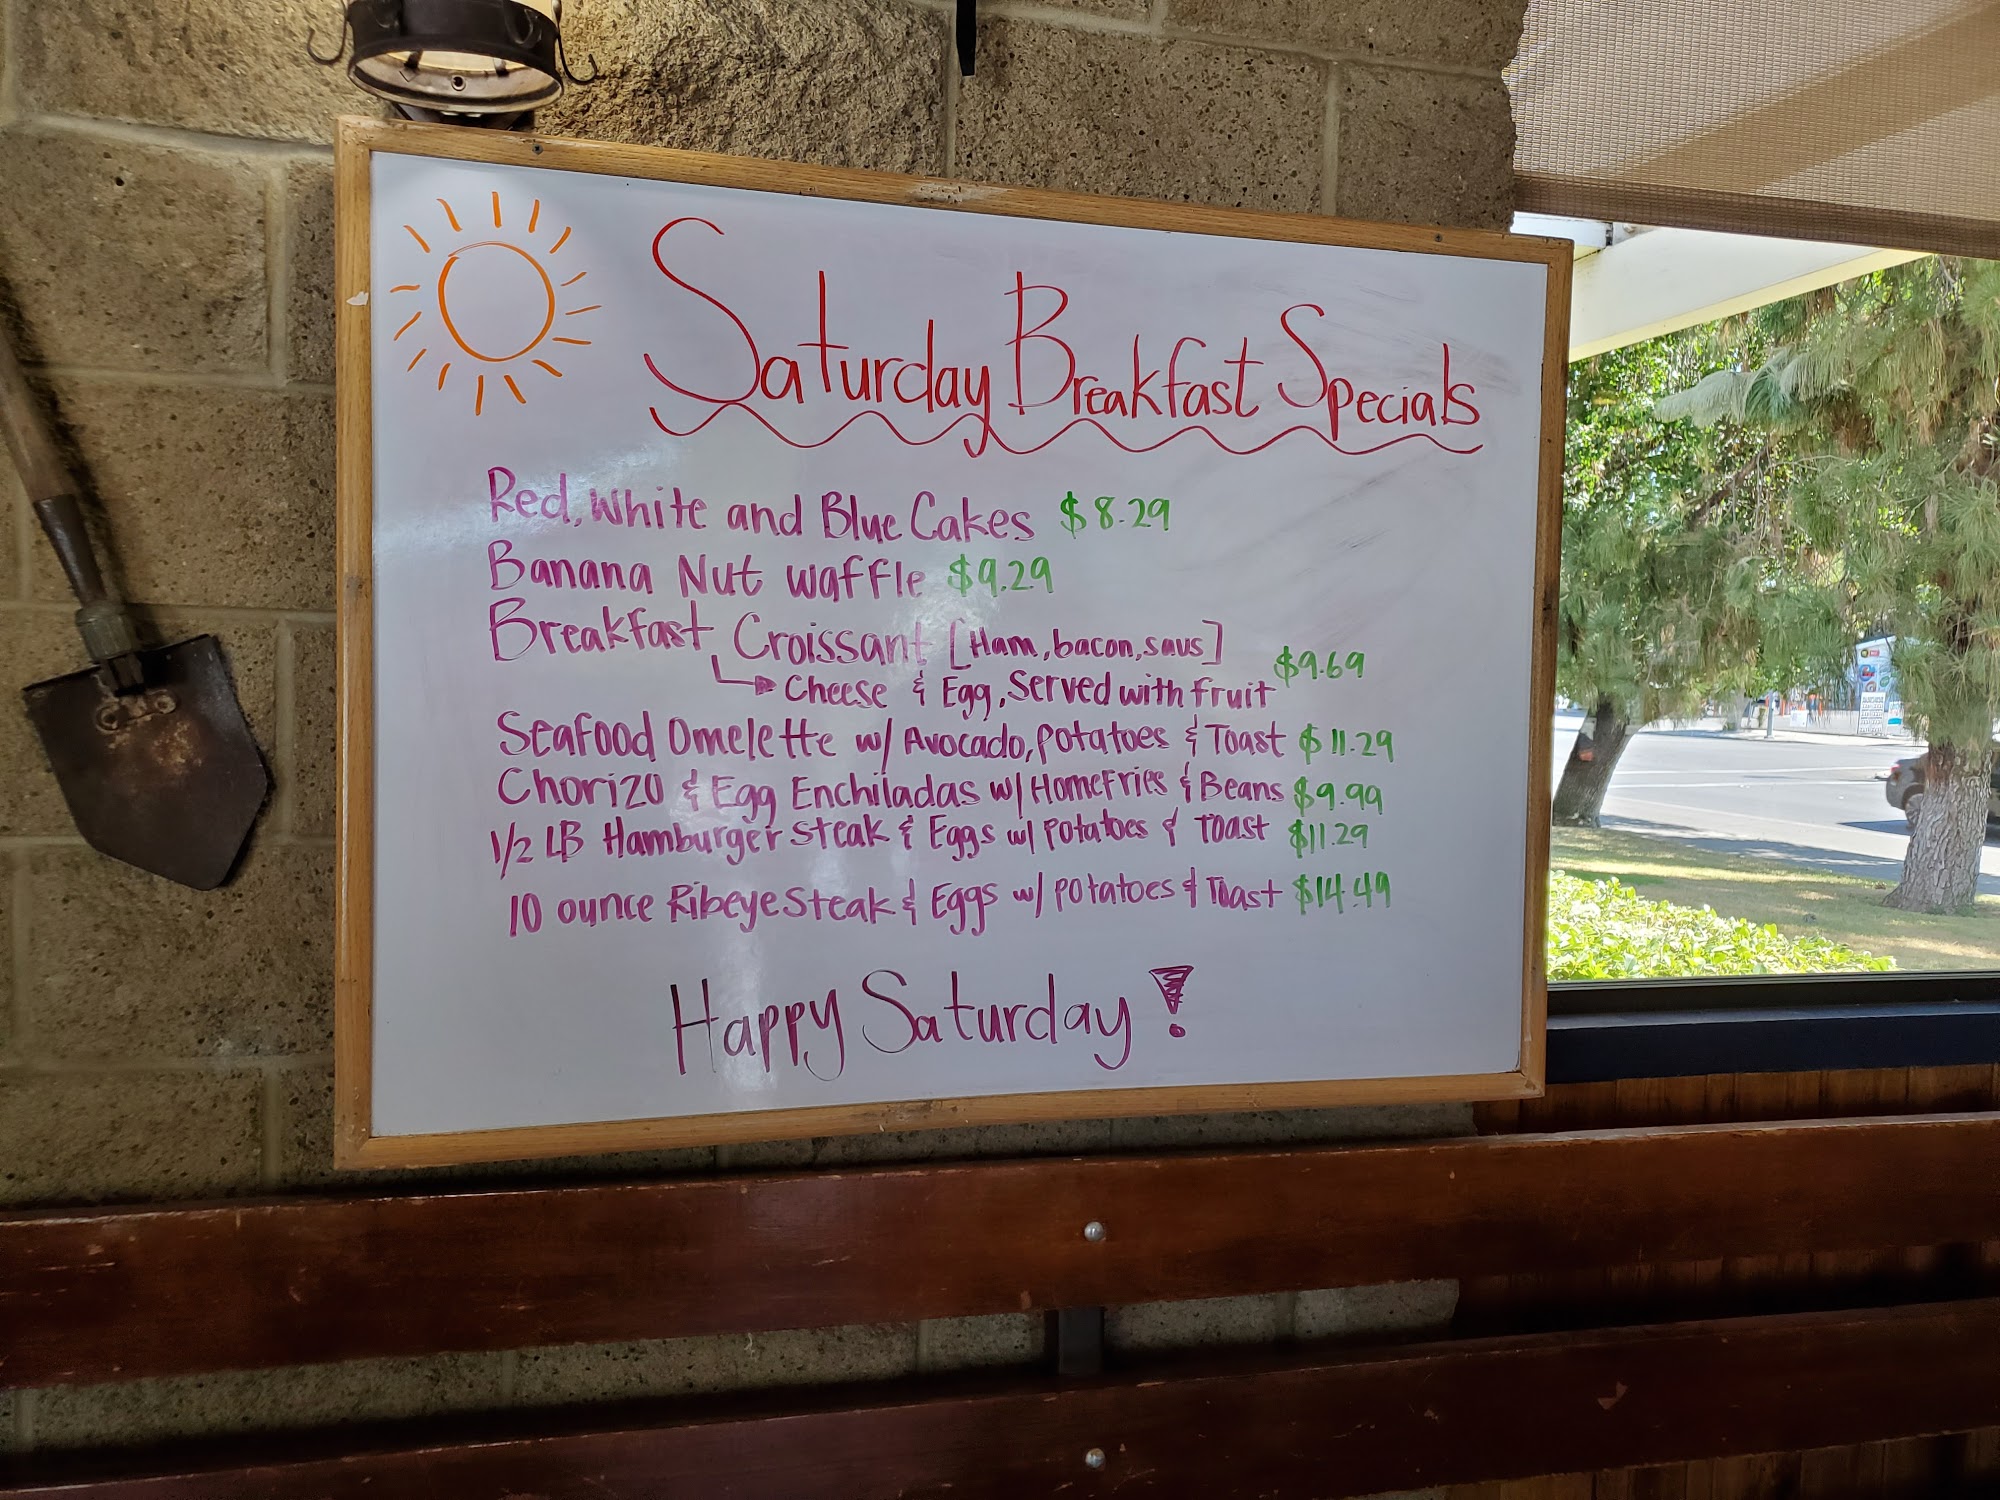 Saturday Breakfast Specials
Red, White and Blue Cakes $8.29
Banana Nut waffle $9.29
Breakfast Croissant [Ham, bacon, saus]
Cheese & Egg, Served with fruit $9.69
Seafood Omelette w/ Avocado, potatoes & Toast $11.29
Chorizo & Egg Enchiladas w/ HomeFries & Beans $9.99
1/2 LB Hamburger steak & Eggs w/ potatoes & Toast $11.29
10 ounce Ribeye steak & Eggs w/ potatoes & Toast $14.49
Happy Saturday!